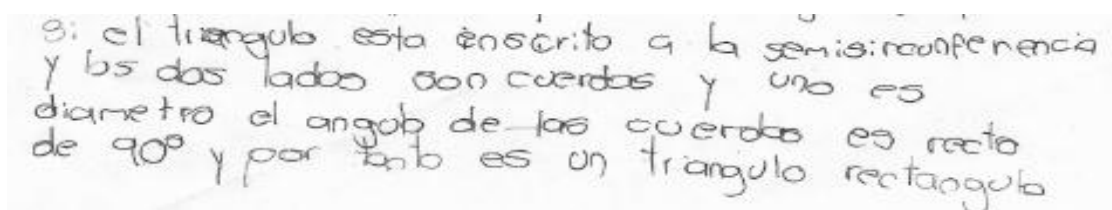 Si el triangulo esta inscrito a la semisircunferencia
y los dos lados son cuerdas y uno es
diametro el angulo de las cuerdas es recto
de 90° y por tanto es un triangulo rectangulo